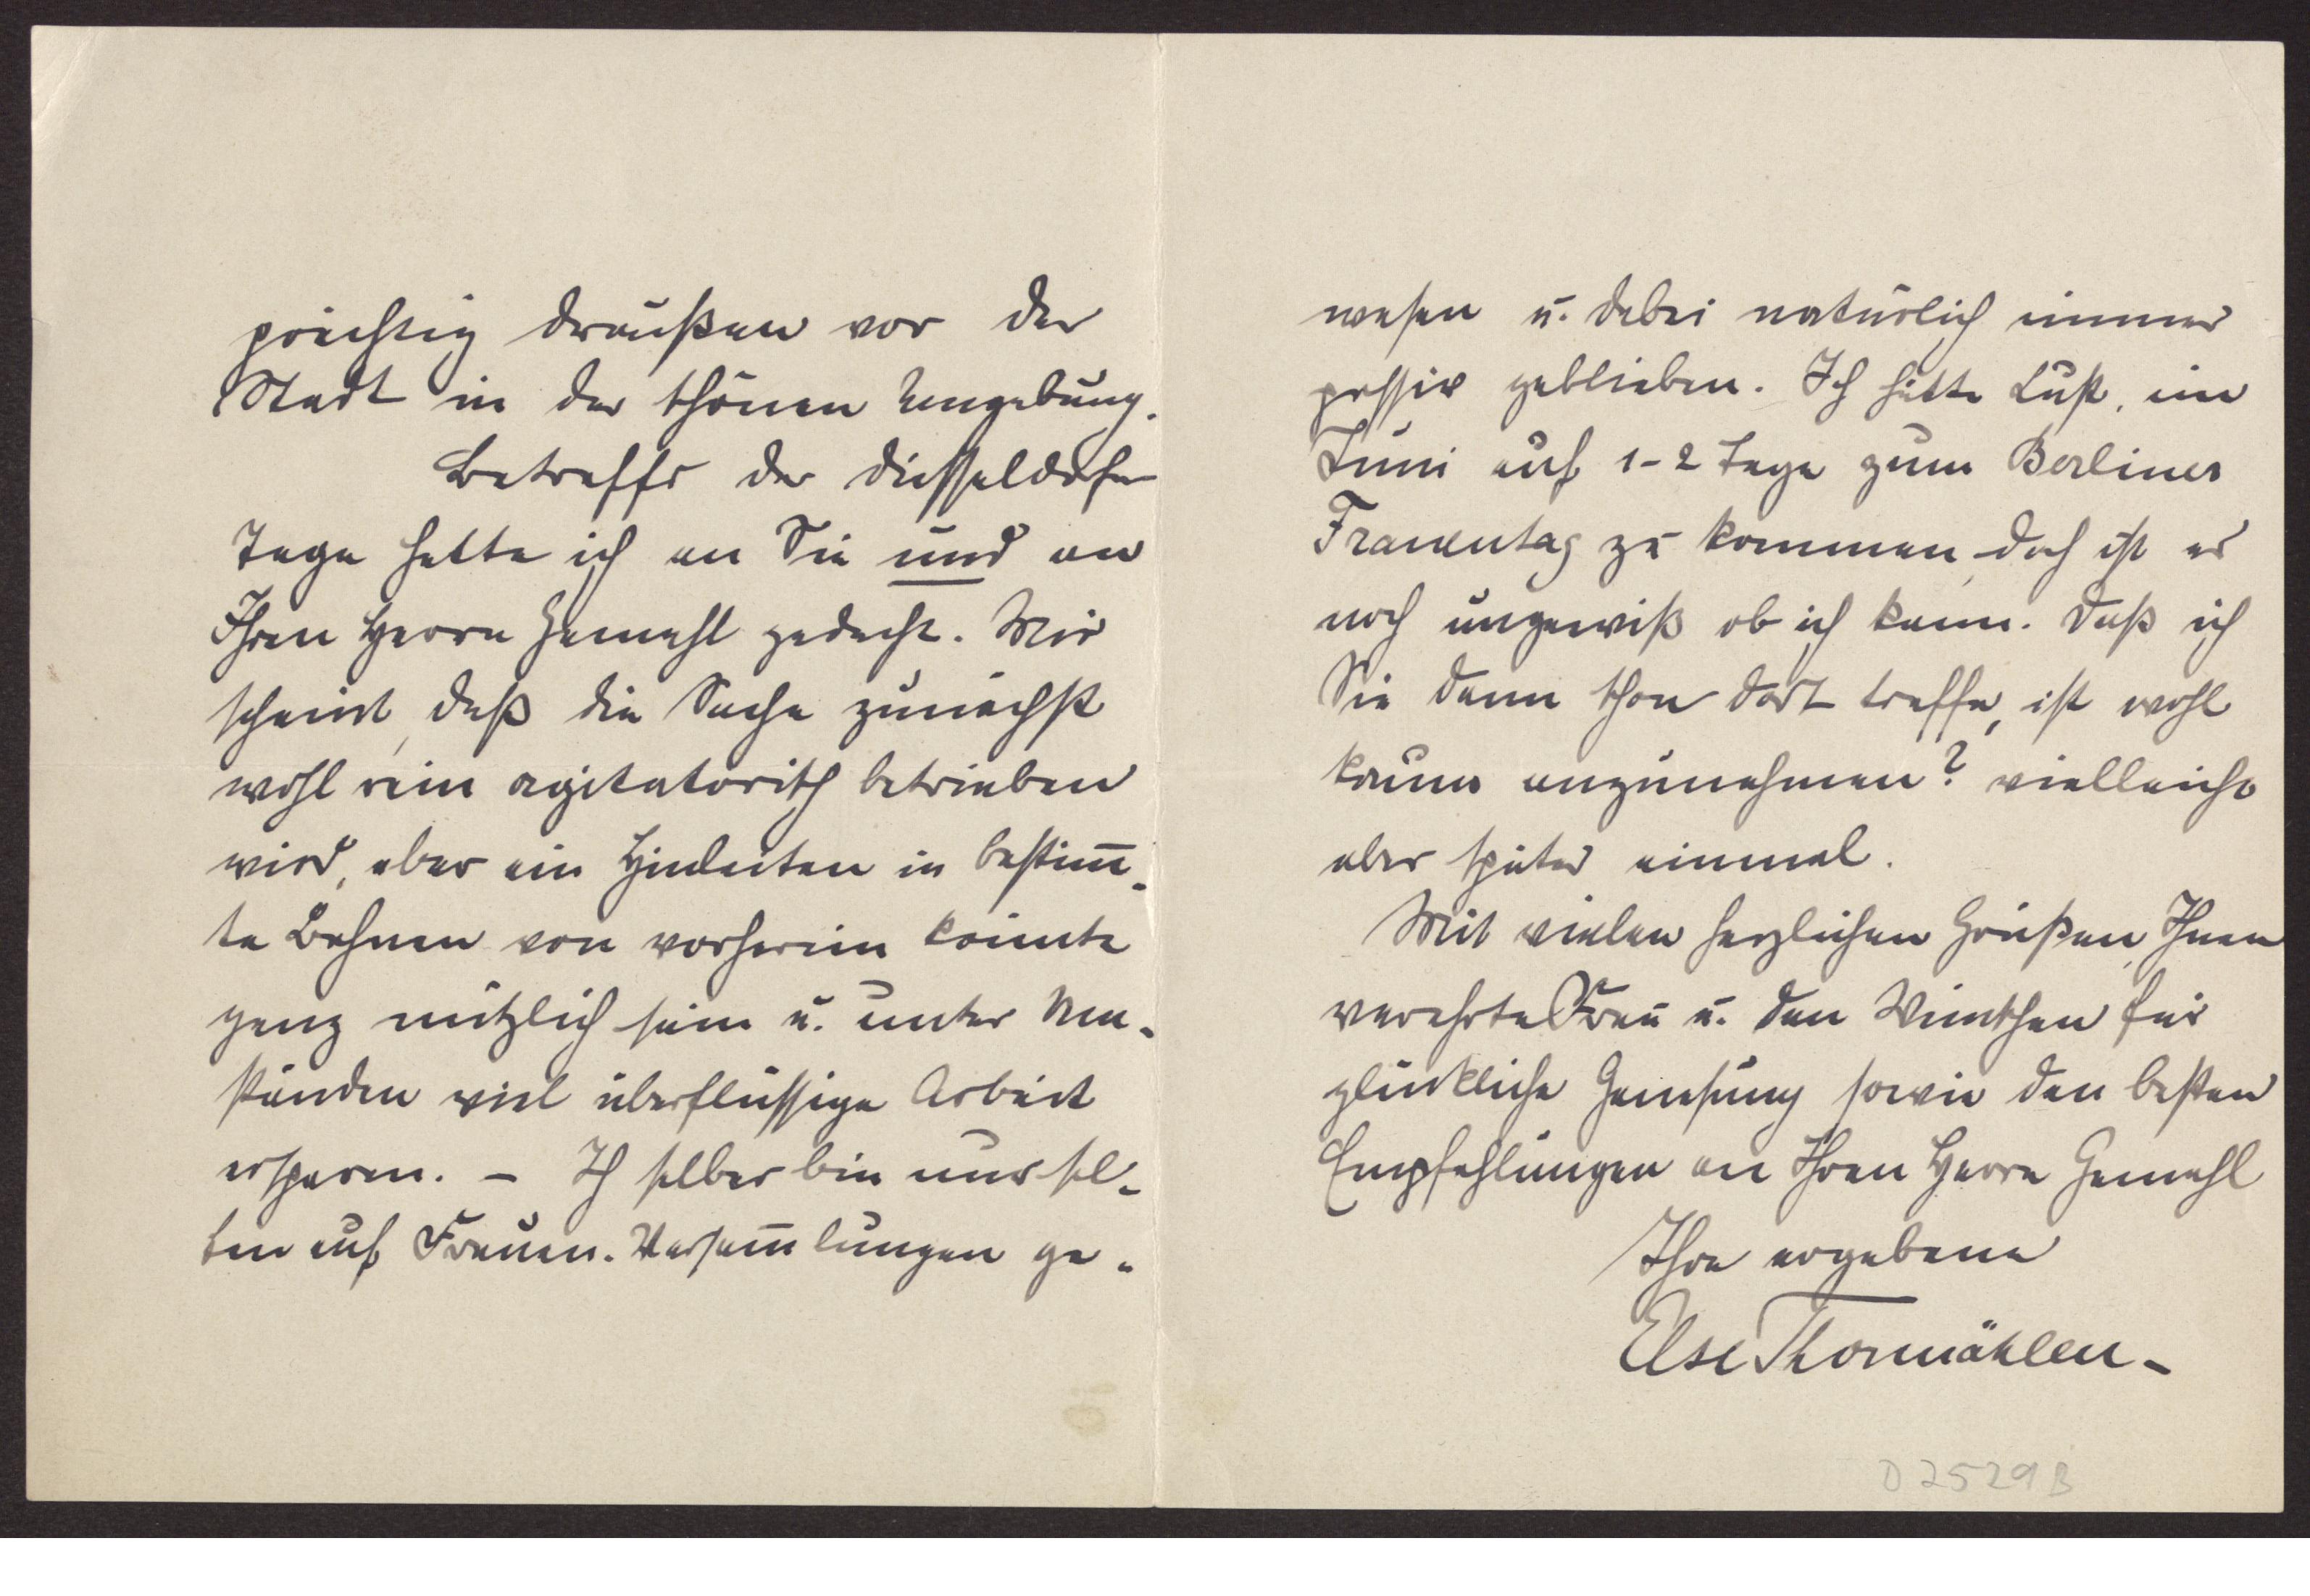 prächtig draußen vor der
Stadt in der schönen Umgebung.
Betreffs der Düsseldorfer
Tage hatte ich an Sie und an
Ihren Herrn Gemahl gedacht. Mir
scheint, daß die Sache zunächst
wohl rein agitatorisch betrieben
wird, aber ein Hinleiten in bestim̅-
te Bahnen von vorherein könnte
ganz nützlich sein u. unter Um-
ständen viel überflüssige Arbeit
ersparen. – Ich selber bin nur sel-
ten auf Frauen-Versam̅lungen ge-
wesen u. dabei natürlich immer
passiv geblieben. Ich hätte Lust, im
Juni auf 1-2 Tage zum Berliner
Frauentag zu kommen, doch ist es
noch ungewiß ob ich kann. Daß ich
Sie dann schon dort treffe, ist wohl
kaum anzunehmen? vielleicht
aber später einmal.
Mit vielen herzlichen Grüßen, Ihnen
verehrte Frau u. den Wünschen für
glückliche Genesung sowie den besten
Empfehlungen an Ihren Herrn Gemahl
Ihre ergebene
Else Thormählen-
D 2529 B